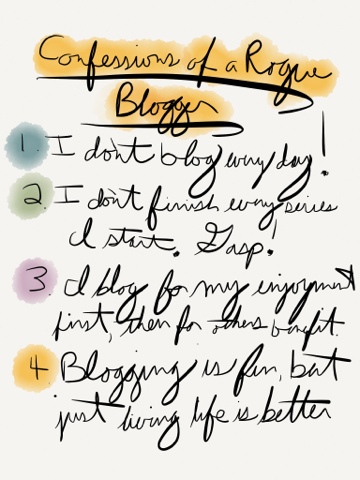 Confessions of a Rogue
Blogger
1. I don't blog every day!
2. I don't finish every series
I start. Gasp!
3. I blog for my enjoyment
first, then for others benefit
4 Blogging is fun, but
just living life is better